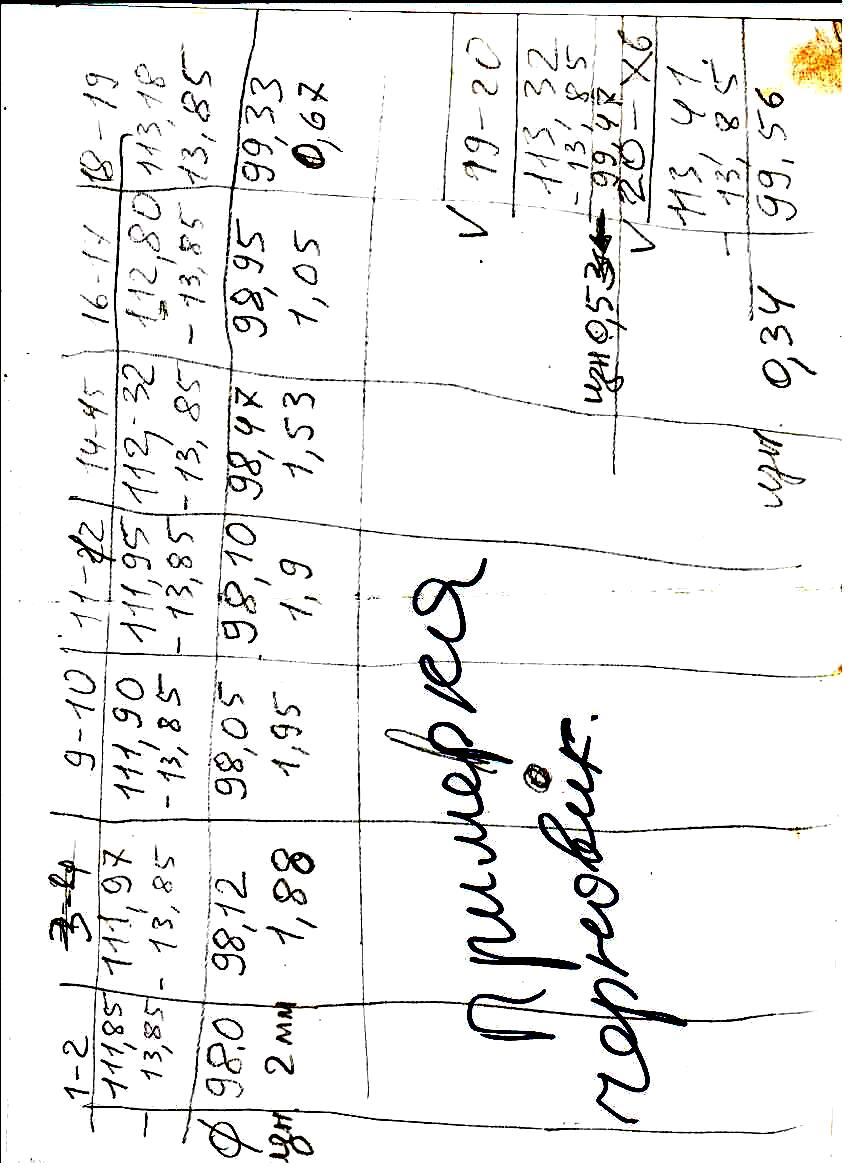 1-2 3-4 9-10 11-12 14-15 16-17 18-19
111,85 111,97 111,90 111,95 112,32 112,80 113,18
- 13,85 - 13,85 - 13,85 - 13,85 - 13,85 - 13,85 13,85
Ø 98.0 98,12 98,05 98,10 98,47 98,95 99,33
изн 2 мм 1,88 1,95 1,9 1,53 1,05 0,67
V 19-20
113,32
- 13,85
изн 0,53 ← 99,47
V 20-X6
113,41
- 13,85
99,56
изн 0,34
Примерка
черновик.